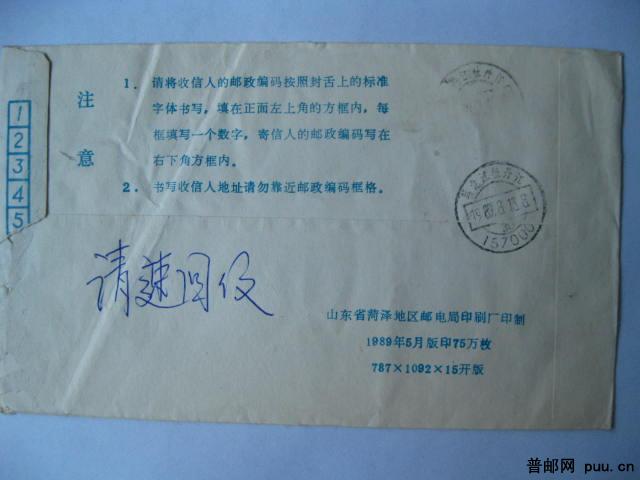 1
2
3
4
5
注意
1. 请将收信人的邮政编码按照封舌上的标准
字体书写，填在正面左上角的方框内，每
框填写一个数字，寄信人的邮政编码写在
右下角方框内。
2. 书写收信人地址请勿靠近邮政编码框格。
157000
请速回
山东省菏泽地区邮电局印刷厂印制
1989年5月版印75万枚
787×1092×15开版
普邮网 puu.cn